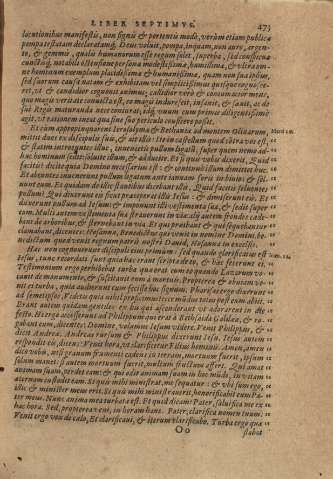 LIBER SEPTIMVS. 273
locutionibus manifestis, non signis & portentis modò, verùm etiam publica
pompa testatam declaratamq́;. Deus voluit, pompa, inquam, non auro, argen-
to, & gemmis, qualis humanorum esse regum solet, superba, sed
notabili ostensione persona modestissima, humillima, & vltra om-
nem hominum exemplum placidissima & humanissima, quam non sua ipsius,
sed suorum causa natam & exhibitam simplicissimus quisque cognosce-
ret, vt & candidior equorum animus;
quo magis veritate conuicta est, eo magis indurescit, insanit, & sauit, at de
hoc Regis mansuetudo nota conturbat, idq́; vnum cum primus diligentissimè
agit, vt rationem ineat qua sine suo periculo conficere possit.
Et cùm appropinquarent Ierosolyma & Bethaniæ ad montem Oliuarum,
mittit duos ex discipulis suis, & ait illis: Ite in castellum quod contra vos est:
& statim introeuntes illuc, inuenietis pullum ligatum, super quem nemo ad-
huc hominum sedit: soluite illum, & adducite. Et si quis vobis dixerit, Quid
facitis? dicite quia Domino necessarius est: & continuò illum dimittet huc.
Et abeuntes inuenerunt pullum ligatum ante ianuam foris in biuio: & sol-
uunt eum. Et quidam de illic stantibus dicebant illis, Quid facitis soluentes
pullum? Qui dixerunt eis sicut præceperat illis Iesus: & dimiserunt eis. Et
duxerunt pullum ad Iesum: & imponunt illi vestimenta sua, & sedit super
eum. Multi autem vestimenta sua strauerunt in via: alij autem frondes cæde-
bant de arboribus, & sternebant in via. Et qui præibant & qui sequebantur
clamabant, dicentes, Hosanna, Benedictus qui venit in nomine Domini, be-
nedictum quod venit regnum patris nostri Dauid, Hosanna in excelsis.
Hæc non cognouerunt discipuli eius primùm: sed quando glorificatus est
Iesus, tunc recordati sunt quia hæc erant scripta de eo, & hæc fecerunt ei.
Testimonium ergo perhibebat turba quæ erat cum eo quando Lazarum vo-
cauit de monumento, & suscitauit eum à mortuis. Propterea & obuiam ve-
nit ei turba, quia audierunt eum fecisse hoc signum. Pharisæi ergo dixerunt
ad semetipsos, Videtis quia nihil proficimus? ecce mundus totus post eum abiit.
Erant autem quidam gentiles ex his qui ascenderant vt adorarent in die
festo. Hi ergo accesserunt ad Philippum qui erat à Bethsaida Galilææ, & ro-
gabant eum, dicentes: Domine, volumus Iesum videre. Venit Philippus, &
dicit Andreæ. Andreas rursum & Philippus dixerunt Iesu. Iesus autem
respondit eis, dicens: Venit hora, vt clarificetur Filius hominis. Amen, amen
dico vobis, nisi granum frumenti cadens in terram, mortuum fuerit, ipsum
solum manet: si autem mortuum fuerit, multum fructum affert. Qui amat
animam suam, perdet eam: & qui odit animam suam in hoc mundo, in vitam
æternam custodit eam. Si quis mihi ministrat, me sequatur: & vbi sum ego,
illic & minister meus erit. Si quis mihi ministrauerit, honorificabit eum Pa-
ter meus. Nunc anima mea turbata est. Et quid dicam? Pater, saluifica me ex
hac hora. Sed, propterea veni, in horam hanc. Pater, clarifica nomen tuum.
Venit ergo vox de cælo, Et clarificaui, & iterum clarificabo. Turba ergo quæ
Oo stabat